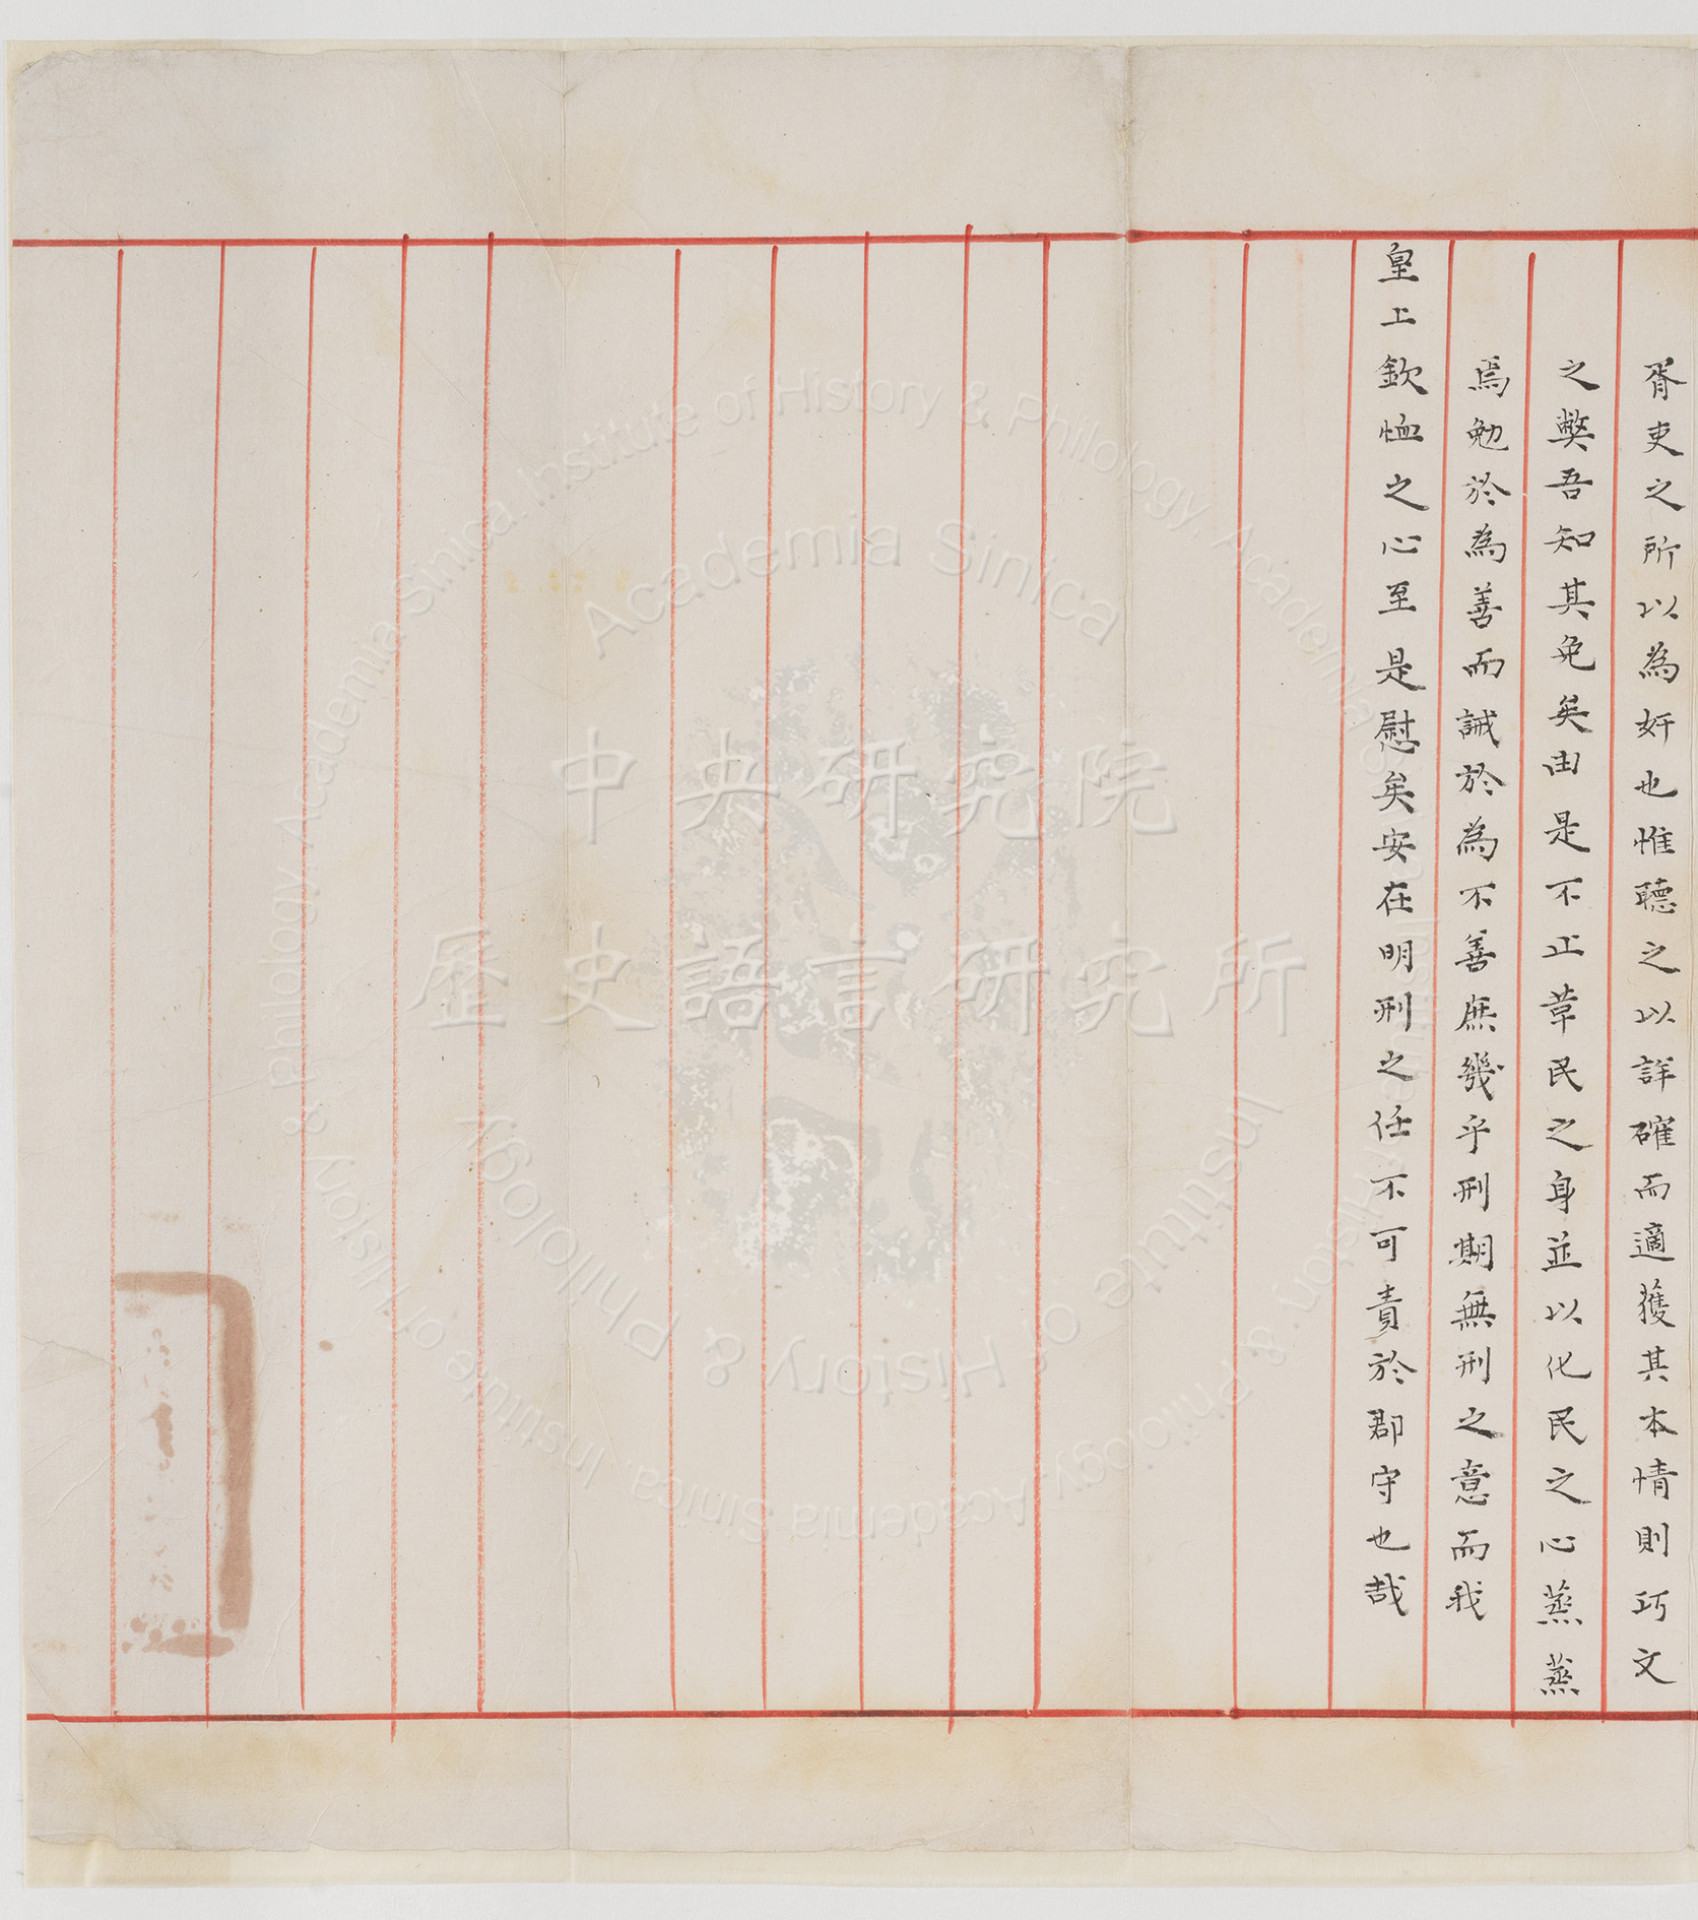 胥吏之所以為奸也惟聽之以詳確而適獲其本情則巧文
之弊吾知其免矣由是不止革民之身並以化民之心蒸蒸
焉勉於為善而誡於為不善庶幾乎刑期無刑之意而我
皇上欽恤之心至是慰矣安在明刑之任不可責於郡守也哉
中央研究院
歷史語言研究所
Academia Sinica
Institute of History & Philology
Institute of History & Philology, Academia Sinica.